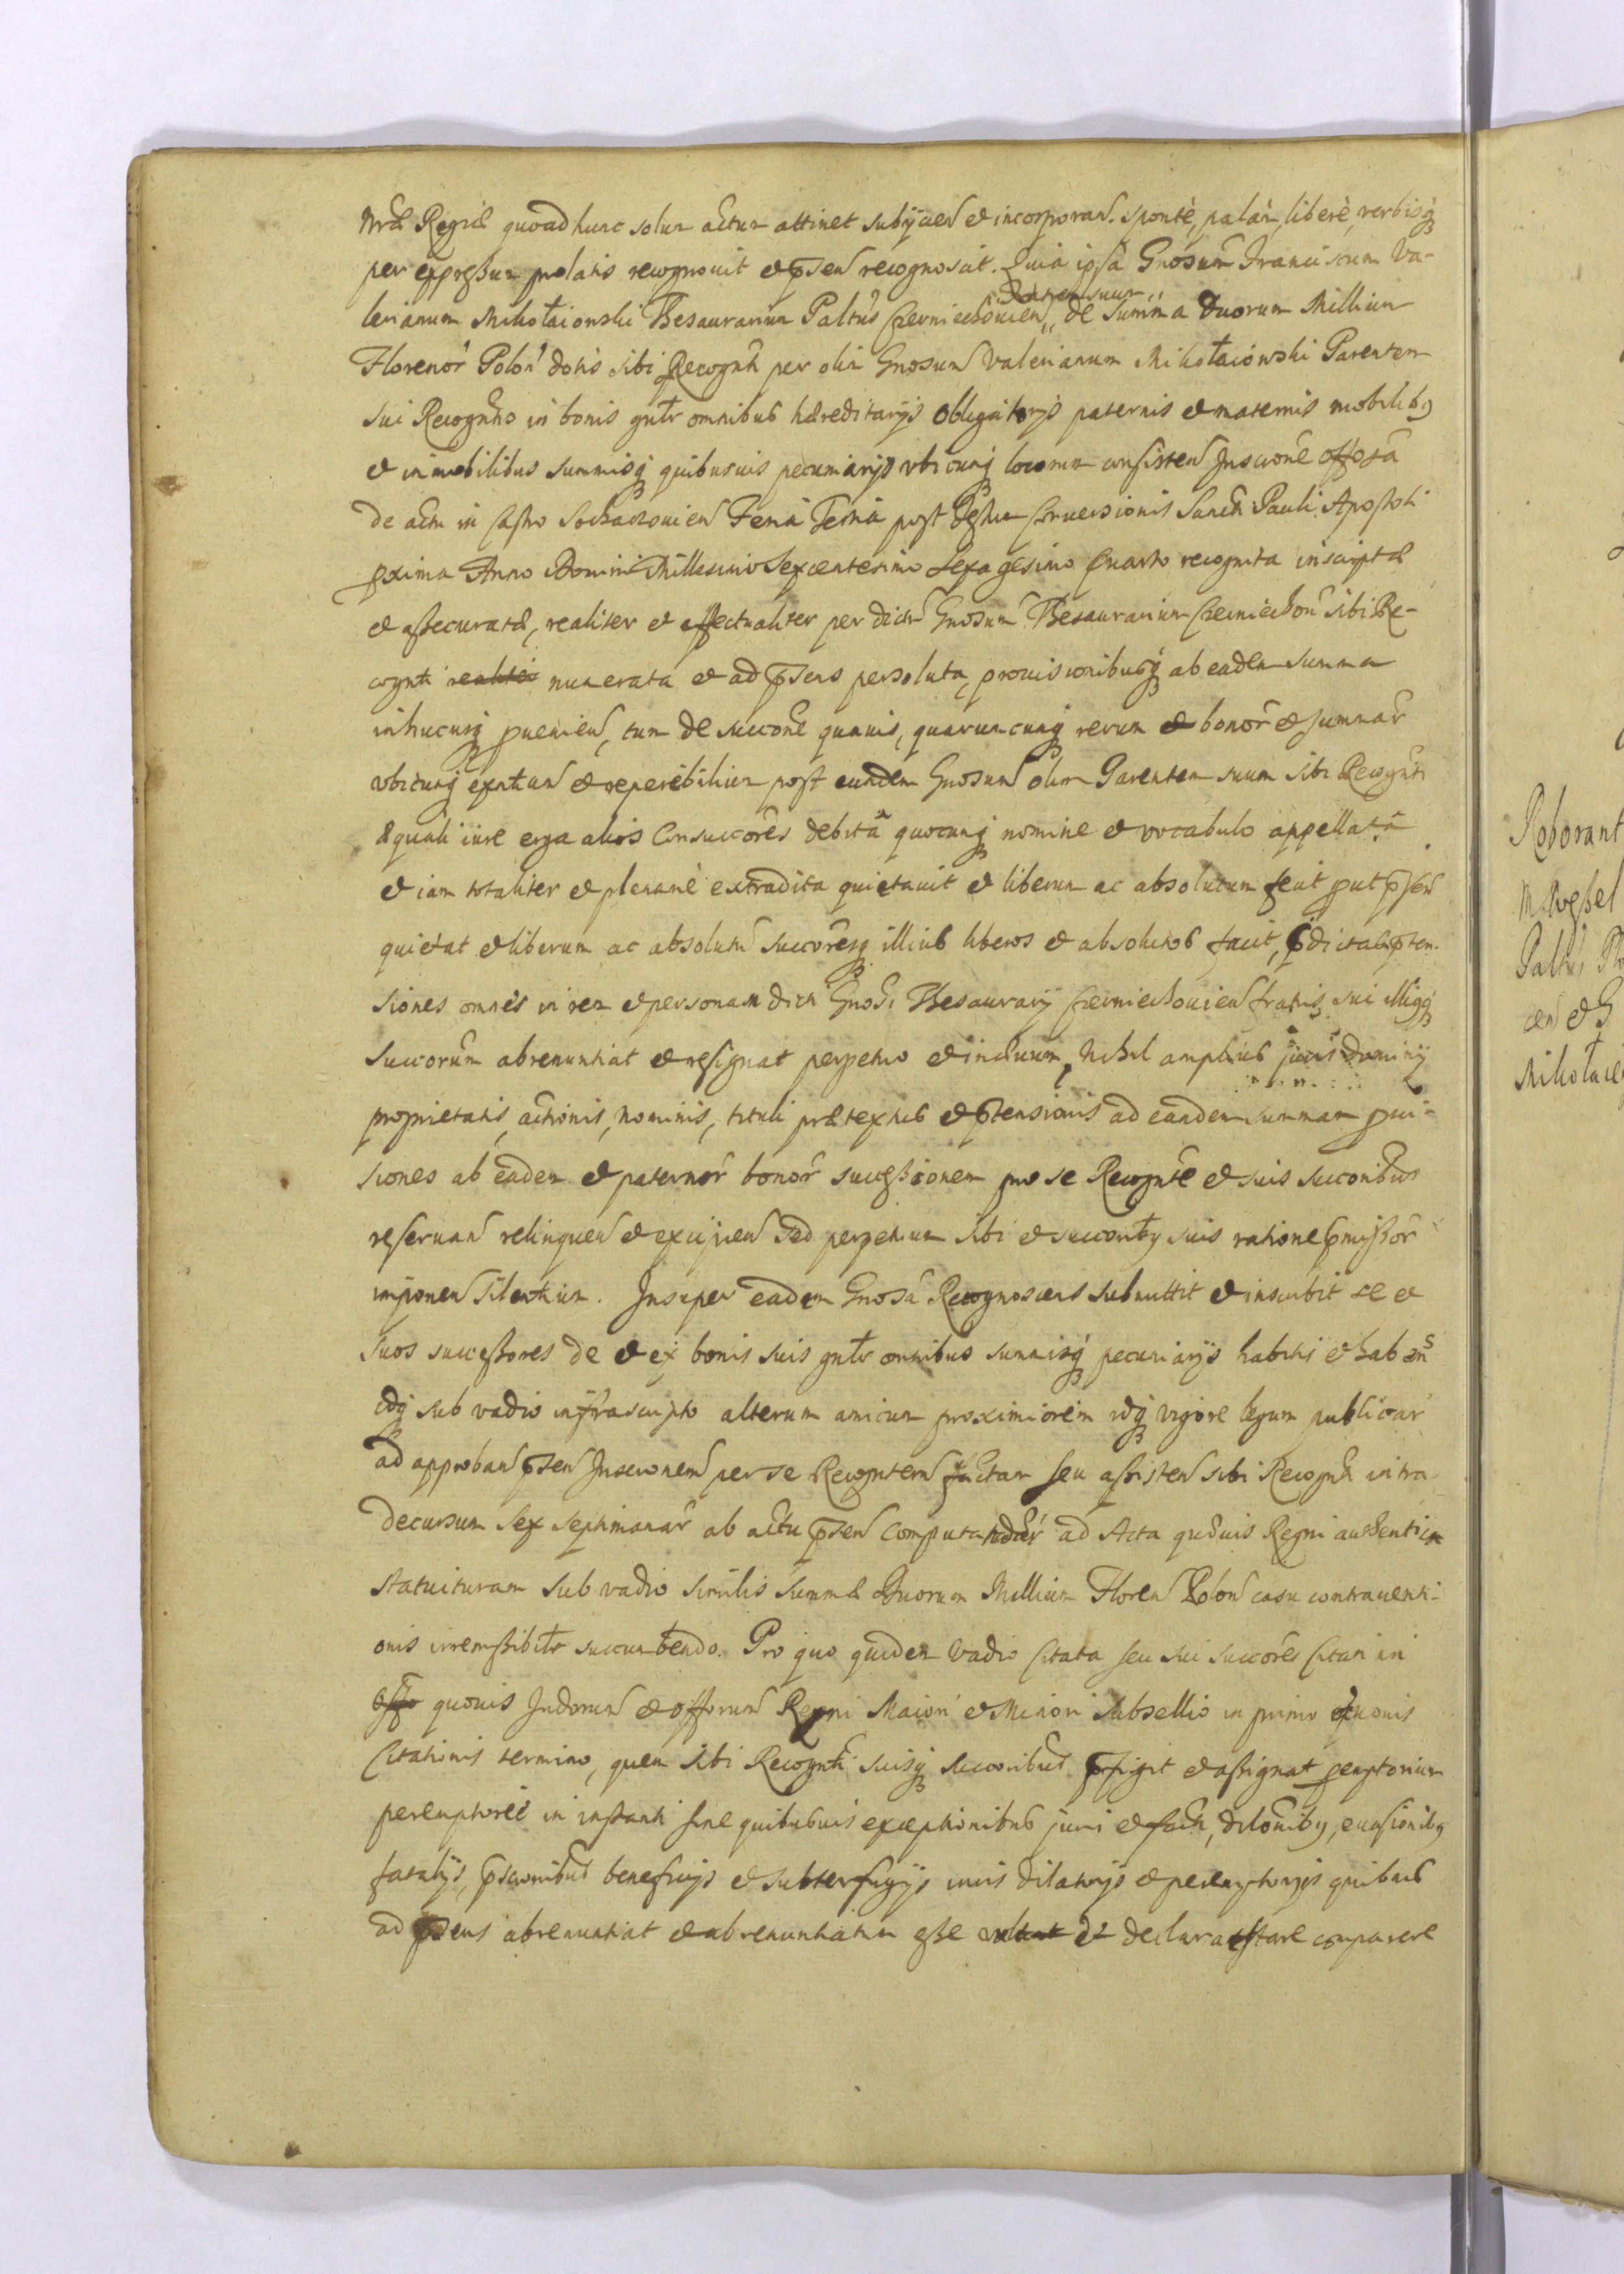 Nræ Regiæ quoad hunc solum actum attinet subijcien et incorporan. Sponte, palàm, liberè, verbisq
per expressum prolatis recognovit et pnsen recognoscit. Quia ipsa Gnosum Franciscum Va-
lerianum Mikołaiowski Thesaurarium Paltus Czerniechouien fratrem suum de Summa Duorum Millium
Florenor Polon dotis sibi Recognti per olim Gnosum Valerianum Mikołaiowski Parentem
sui Recogntis in bonis gnlr omnibus hæreditarijs obligatorijs paternis et maternis mobilibq
et immobilibus summisq quibusuis pecuniarijs vbicunq locorum consisten Inscrone offosa
de actu in Castro Sochaczouien Feria Tertia post Festum Conversionis Sancti Pauli Apostoli
pxima Anno Domini Millesimo Sexcentesimo Sexagesimo Quarto recognita inscriptæ
et assecuratæ, realiter et effectualiter per dictum Gnosum Thesaurarium Czerniechou sibi Re-
cognti realiter numerata et ad pnsens persoluta, prouisionibusq ab eadem summa
inhucusq pueniен, tum de succone quauis, quarumcunq rerum et bonor et summar
vbicunq existium et reperibilium post eundem Gnosum olim Parentem suum sibi Recognti
æquali iure erga alios Consuccores debita quocunq nomine et vocabulo appellata
et iam totaliter et plenariè extradita quietauit et liberum ac absolutum fecit put pnsen
quietat et liberum ac absolutum succoresq illius liberos et absolutos facit, pdictas pten-
siones omnes in rem et personam dicti Gnosi Thesaurarij Czerniechouien fratris sui illiqq
succorum abrenuntiat et resignat perpetuo et in æuum, Nihil amplius juris Dominij
proprietatis, actionis, nominis, tituli prætextus et ptensionis ad eandem summam pui-
siones ab eadem et paternor bonor successionem pro se Recognte et suis succoribus
reseruan relinquen et excipien sed perpetuum sibi et succoribq suis ratione pmissor
imponen silentium. Insuper eadem Gnosa Recognoscens submittit et inscribit se et
suos successores de et ex bonis suis gnlr omnibus summisq pecuniarijs habitis et haben
idq sub vadio infrascripto alterum amicum proximiorem idq vigore legum publicar
ad approban pnsen Inscronem per se Recogntem factam seu assisten sibi Recognti intra
decursum sex septimanar ab actu pnsen computandar ad Acta quæuis Regni authentica
statuituram sub vadio similis summæ Duorum Millium Floren Polon casu contrauenti-
onis irremissibilr succumbendo. Pro quo quidem vadio citata seu sui succores citati in
offo quouis Judorum et offorum Regni Maiori et Minori Subsellio in primo quouis
Citationis termino, quem sibi Recognti suisq succoribus pfigit et assignat pemptorium
peremptoriè in instanti sine quibusuis exceptionibus juri et facti, dilonibq, euasionibq
fatalijs, pscronibus beneficijs et subterfugijs iuris dilatorijs et peremptorijs quibus
ad pnsens abrenuntiat et abrenuntiatum esse vult et declarat stare comparere
Roborant
Paltus
Mikołaie